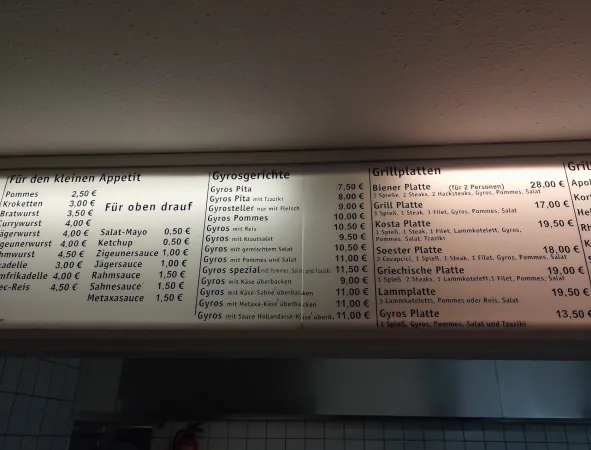 Für den kleinen Appetit
Pommes 2,50 €
Kroketten 3,00 €
Bratwurst 3,50 €
urrywurst 4,00 €
ägerwurst 4,00 €
geunerwurst 4,00 €
hmwurst 4,50 €
kadelle 3,00 €
mfrikadelle 4,00 €
ec-Reis 4,50 €
Für oben drauf
Salat-Mayo 0,50 €
Ketchup 0.50 €
Zigeunersauce 1,00 €
Jägersauce 1,00 €
Rahmsauce 1,50 €
Sahnesauce 1,50 €
Metaxasauce 1,50 €
Gyrosgerichte
Gyros Pita 7,50 €
Gyros Pita mit Tzaziki 8,00 €
Gyrosteller nur mit Fleisch 9,00 €
Gyros Pommes 10,00 €
Gyros mit Reis 10,50 €
Gyros mit Krautsalat 9,50 €
Gyros mit gemischtem Salat 10,50 €
Gyros mit Pommes und Salat 11,00 €
Gyros spezial mit Pommes, Salat und Tzaziki 11,50 €
Gyros mit Käse überbacken 9,00 €
Gyros mit Käse-Sahne überbacken 11,00 €
Gyros mit Metaxa-Käse überbacken 11,00 €
Gyros mit Sauce Hollandaise-Käse überb. 11,00 €
Grillplatten
Biener Platte (für 2 Personen) 28,00 €
2 Spieße, 2 Steaks, 2 Hacksteaks, Gyros, Pommes, Salat
Grill Platte 17,00 €
1 Spieß, 1 Steak, 1 Filet, Gyros, Pommes, Salat
Kosta Platte 19,50 €
1 Spieß, 1 Steak, 1 Filet, Lammkotelett, Gyros,
Pommes, Salat, Tzaziki
Soester Platte 18,00 €
2 Cevapcici, 1 Spieß, 1 Filet, Gyros, Pommes, Salat
Griechische Platte 19,00 €
1 Spieß, 2 Steaks, 1 Lammkotelett, 1 Filet, Pommes, Salat
Lammplatte 19,50 €
3 Lammkoteletts, Pommes oder Reis, Salat
Gyros Platte 13,50 €
1 Spieß, Gyros, Pommes, Salat und Tzaziki
Gril
Apol
Kor
Hel
Rh
K
O